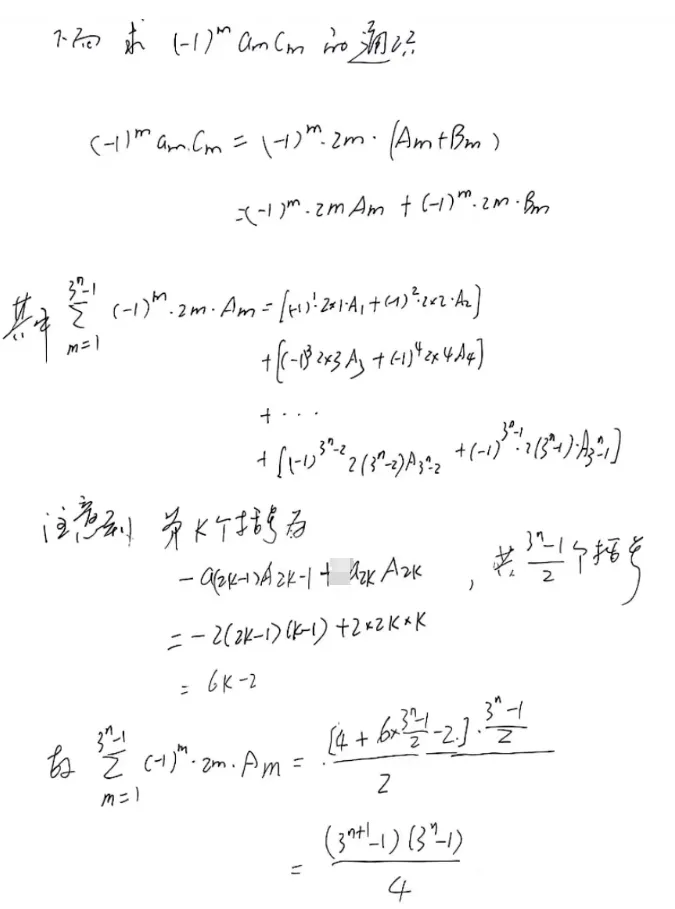 下面求 (-1)^m a_m C_m 的通项
(-1)^m a_m·C_m = (-1)^m·2m·(A_m+B_m)
=(-1)^m·2m A_m + (-1)^m·2m·B_m
其中 ∑_{m=1}^{3^n-1} (-1)^m·2m·A_m = [(-1)^1·2×1·A_1 + (-1)^2·2×2·A_2]
+[(-1)^3 2×3 A_3 + (-1)^4 2×4 A_4]
+ · · ·
+ [(-1)^{3^n-2} 2(3^n-2)A_{3^n-2} + (-1)^{3^n-1}·2(3^n-1)·A_{3^n-1}]
注意到 第K个括号为
-a(2K-1)A_{2K-1} + a_{2K} A_{2K} , 共 (3^n-1)/2 个括号
= -2(2K-1)(K-1) + 2×2K×K
= 6K-2
故 ∑_{m=1}^{3^n-1} (-1)^m·2m·A_m = [4 + 6×(3^n-1)/2 -2]·(3^n-1)/2 / 2
= (3^{n+1}-1)(3^n-1) / 4